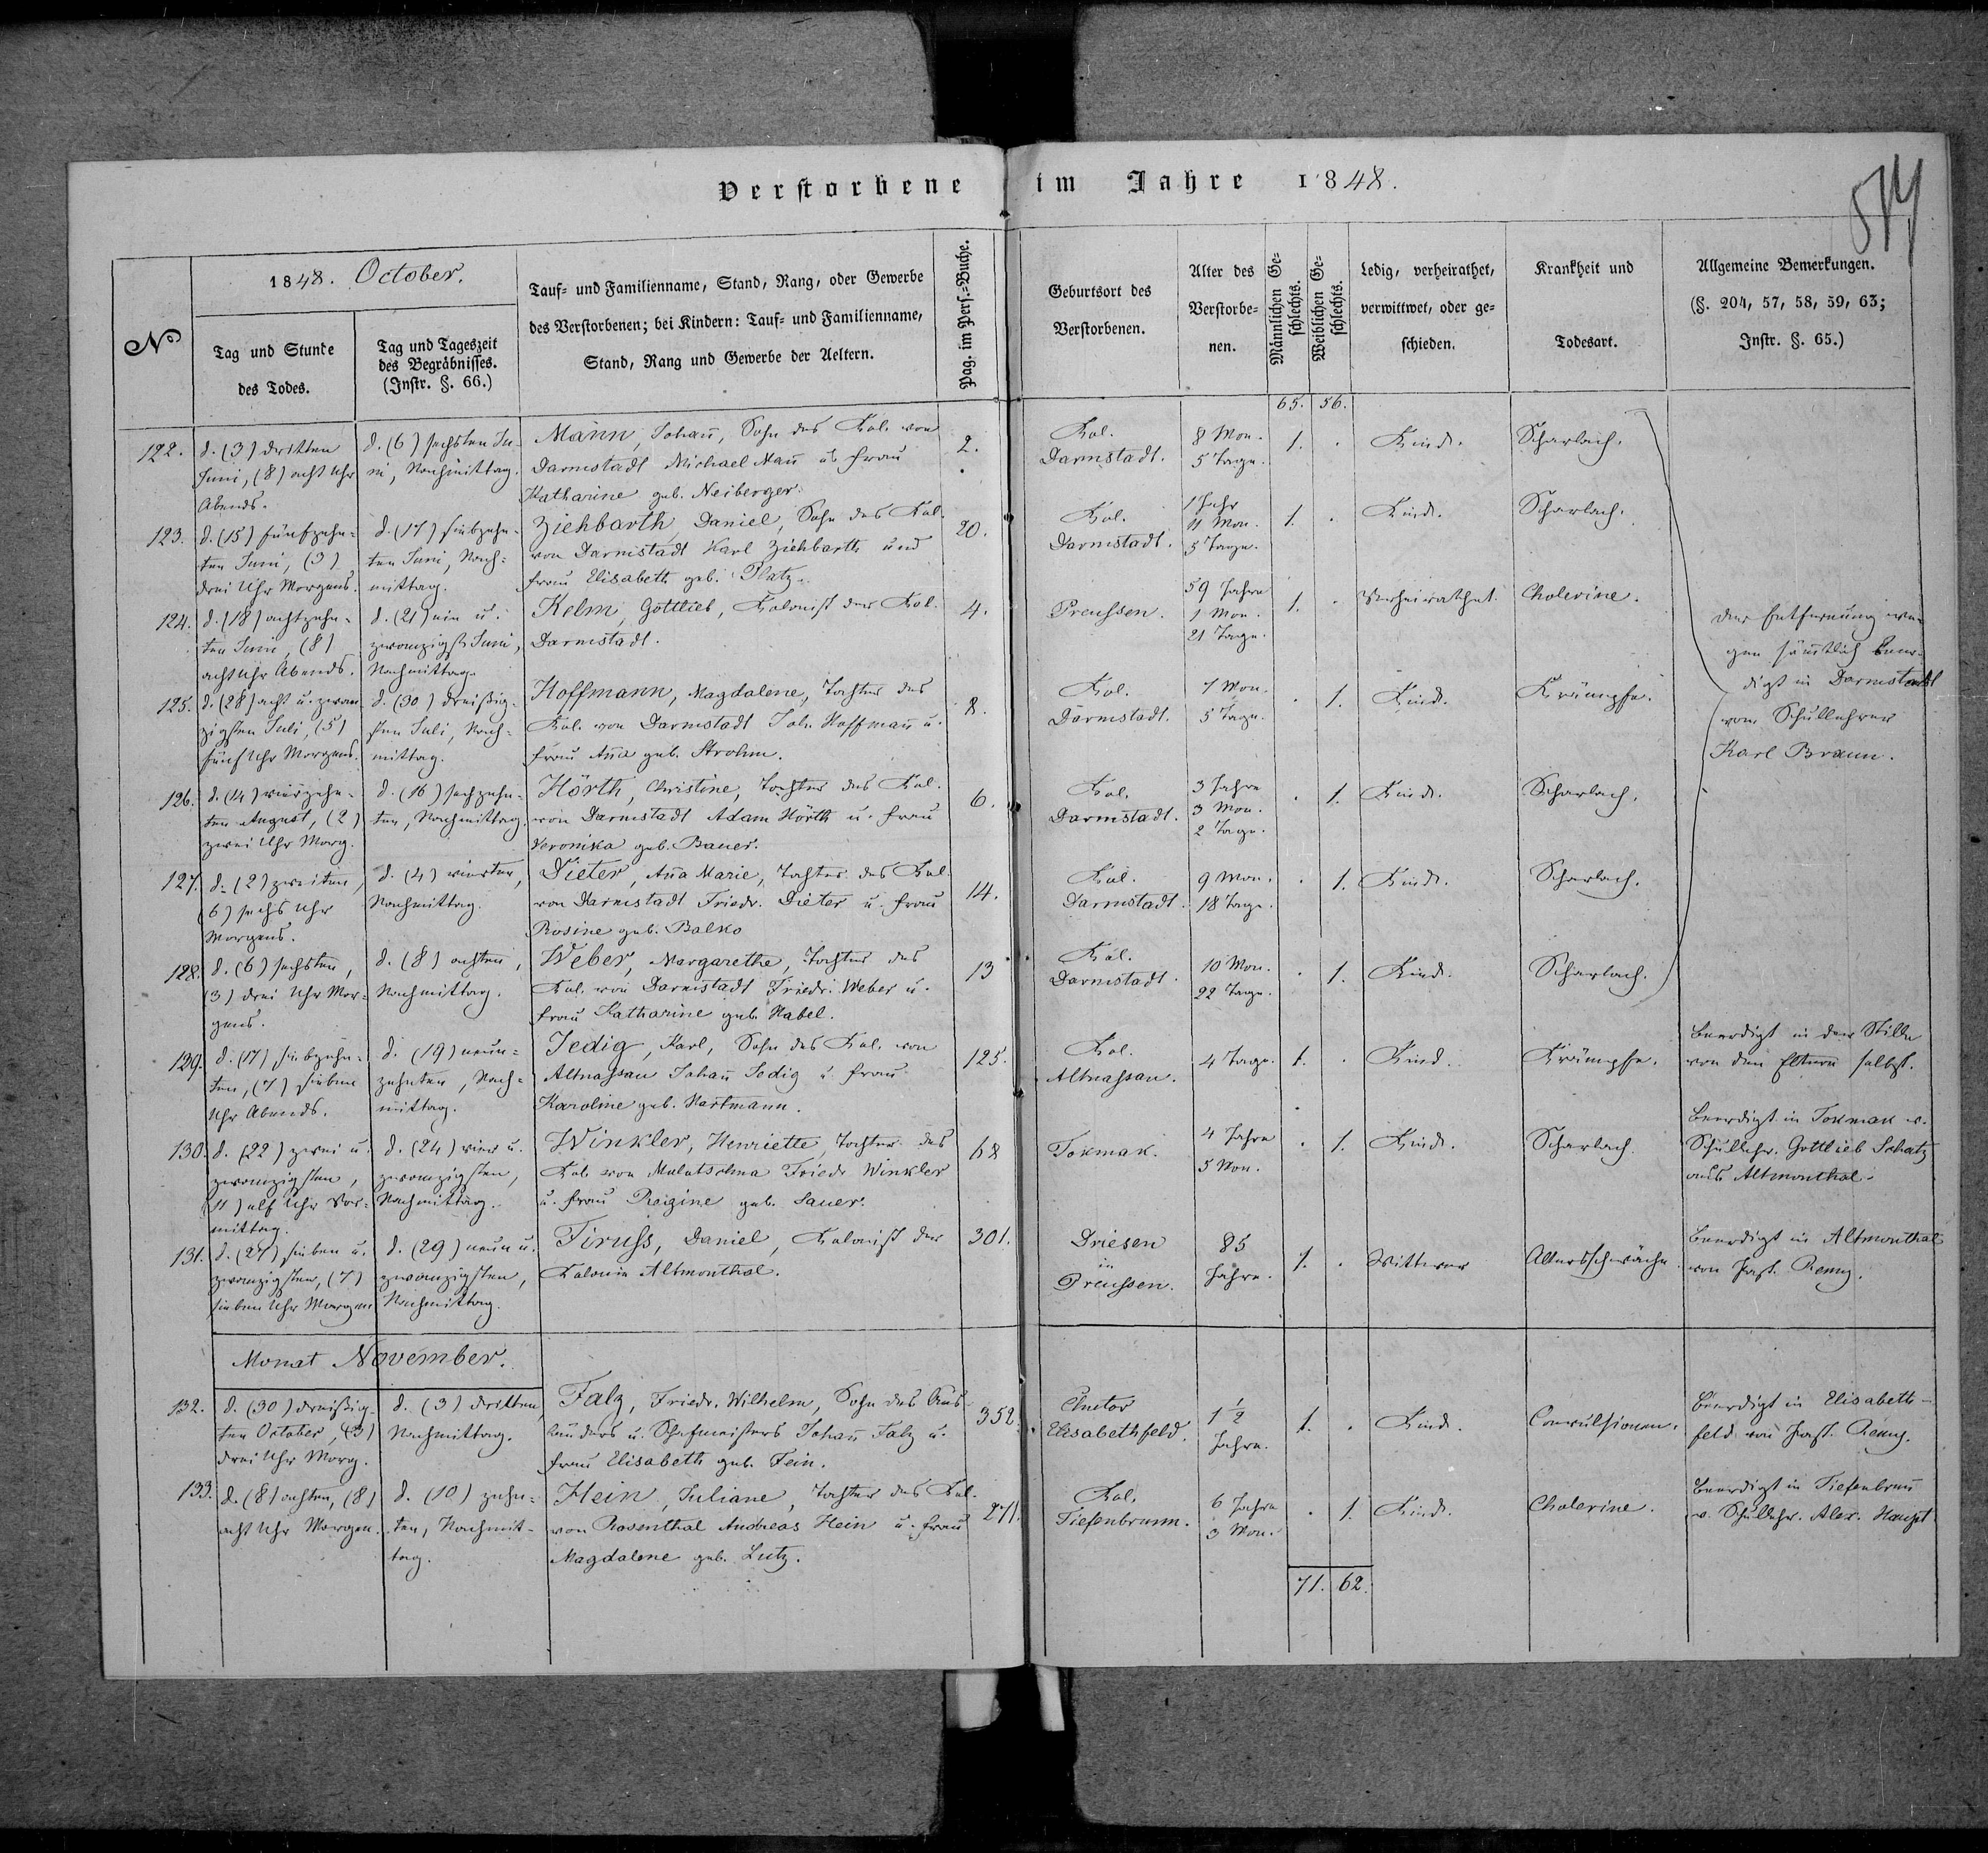 Verstorbene im Jahre 1848.
514
№
1848. October.
Tag und Stunde
des Todes.
Tag und Tageszeit
des Begräbnisses.
(Instr. §. 66.)
Tauf- und Familienname, Stand, Rang, oder Gewerbe
des Verstorbenen; bei Kindern: Tauf- und Familienname,
Stand, Rang und Gewerbe der Aeltern.
Pag. im Pers.-Buche.
Geburtsort des
Verstorbenen.
Alter des
Verstorbe-
nen.
Männlichen Ge-
schlechts.
Weiblichen Ge-
schlechts.
Ledig, verheirathet,
verwittwet, oder ge-
schieden.
Krankheit und
Todesart.
Allgemeine Bemerkungen.
(§. 204, 57, 58, 59, 63;
Instr. §. 65.)
65. 56.
122.
d. (3) dritten
Juni, (8) acht Uhr
Abends.
d. (6) sechsten Ju-
ni, Nachmittag.
Mann, Johañ, Sohn des Kol. von
Darmstadt Michael Mañ u. Frau
Katharine geb. Neiberger.
2.
Kol.
Darmstadt.
8 Mon.
5 Tage.
1. .
Kind.
Scharlach.
123.
d. (15) fünfzehn-
ten Juni, (3)
drei Uhr Morgens.
d. (17) siebzehn-
ten Juni, Nach-
mittag.
Ziehbarth, Daniel, Sohn des Kol.
von Darmstadt Karl Ziehbarth und
Frau Elisabeth geb. Platz.
20.
Kol.
Darmstadt.
1 Jahr
11 Mon.
5 Tage.
1. .
Kind.
Scharlach.
124.
d. (18) achtzehn-
ten Juni, (8)
acht Uhr Abends.
d. (21) ein u.
zwanzigst. Juni,
Nachmittag.
Kelm, Gottlieb, Kolonist der Kol.
Darmstadt.
4.
Preussen.
59 Jahre
1 Mon.
21 Tage.
1. .
Verheirathet.
Cholerine.
125.
d. (28) acht u. zwan
zigsten Juli, (5)
fünf Uhr Morgens.
d. (30) dreißig-
sten Juli, Nach-
mittag.
Hoffmann, Magdalene, Tochter des
Kol. von Darmstadt Joh. Hoffmañ u.
Frau Aña geb. Strohm.
8.
Kol.
Darmstadt.
7 Mon.
5 Tage.
. 1.
Kind.
Krämpfe.
der Entfernung we-
gen säm̃tlich beer-
digt in Darmstadt
vom Schullehrer
Karl Braun.
126.
d. (14) vierzehn-
ten August, (2)
zwei Uhr Morg.
d. (16) sechzehn-
ten, Nachmittag.
Hörth, Christine, Tochter des Kol.
von Darmstadt Adam Hörth u. Frau
Veronika geb. Bauer.
6.
Kol.
Darmstadt.
3 Jahre
3 Mon.
2 Tage.
. 1.
Kind.
Scharlach.
127.
d. (2) zweiten,
(6) sechs Uhr
Morgens.
d. (4) vierten,
Nachmittag.
Dieter, Aña Marie, Tochter des Kol.
von Darmstadt Friedr. Dieter u. Frau
Rosine geb. Balko
14.
Kol.
Darmstadt.
9 Mon.
18 Tage.
. 1.
Kind.
Scharlach.
128.
d. (6) sechsten,
(3) drei Uhr Mor-
gens.
d. (8) achten,
Nachmittag.
Weber, Margarethe, Tochter des
Kol. von Darmstadt Friedr. Weber u.
Frau Katharine geb. Habel.
13
Kol.
Darmstadt.
10 Mon.
22 Tage.
. 1.
Kind.
Scharlach.
129.
d. (17) siebzehn-
ten, (7) sieben
Uhr Abends.
d. (19) neun-
zehnten, Nach-
mittag.
Jedig, Karl, Sohn des Kol. von
Altnassau Johañ Jedig u. Frau
Karoline geb. Hartmann.
125.
Kol.
Altnassau.
4 Tage.
1. .
Kind.
Krämpfe.
Beerdigt in der Stille
von den Eltern selbst.
130.
d. (22) zwei u.
zwanzigsten,
(11) elf Uhr Vor-
mittag.
d. (24) vier u.
zwanzigsten,
Nachmittag.
Winkler, Henriette, Tochter des
Kol. von Molotschna Friedr. Winkler
u. Frau Regine geb. Sauer.
68
Tokmak.
4 Jahre
5 Mon.
. 1.
Kind.
Scharlach.
Beerdigt in Tokmak v.
Schullehr. Gottlieb Schatz
aus Altmonthal.
131.
d. (27) sieben u.
zwanzigsten, (7)
sieben Uhr Morgen
d. (29) neun u.
zwanzigsten,
Nachmittag.
Firuss, Daniel, Kolonist der
Kolonie Altmonthal.
301.
Driesen
in
Preussen.
85
Jahre.
1. .
Wittwer
Altersschwäche.
Beerdigt in Altmonthal
von Past. Remy.
Monat November.
132.
d. (30) dreißig-
ten October, (3)
drei Uhr Morg.
d. (3) dritten,
Nachmittag.
Falz, Friedr. Wilhelm, Sohn des Aus-
länders u. Schafmeisters Johañ Falz u.
Frau Elisabeth geb. Fein.
352.
Chutor
Elisabethfeld.
1 ½
Jahre.
1. .
Kind.
Convulsionen.
Beerdigt in Elisabeth-
feld von Past. Remy.
133.
d. (8) achten, (8)
acht Uhr Morgen.
d. (10) zehn-
ten, Nachmit-
tag.
Hein, Juliane, Tochter des Kol.
von Rosenthal Andreas Hein u. Frau
Magdalene geb. Lutz.
271.
Kol.
Tiefenbrunn.
6 Jahre
3 Mon.
. 1.
Kind.
Cholerine.
Beerdigt in Tiefenbruñ
v. Schullehr. Alex. Haupt
71. 62.